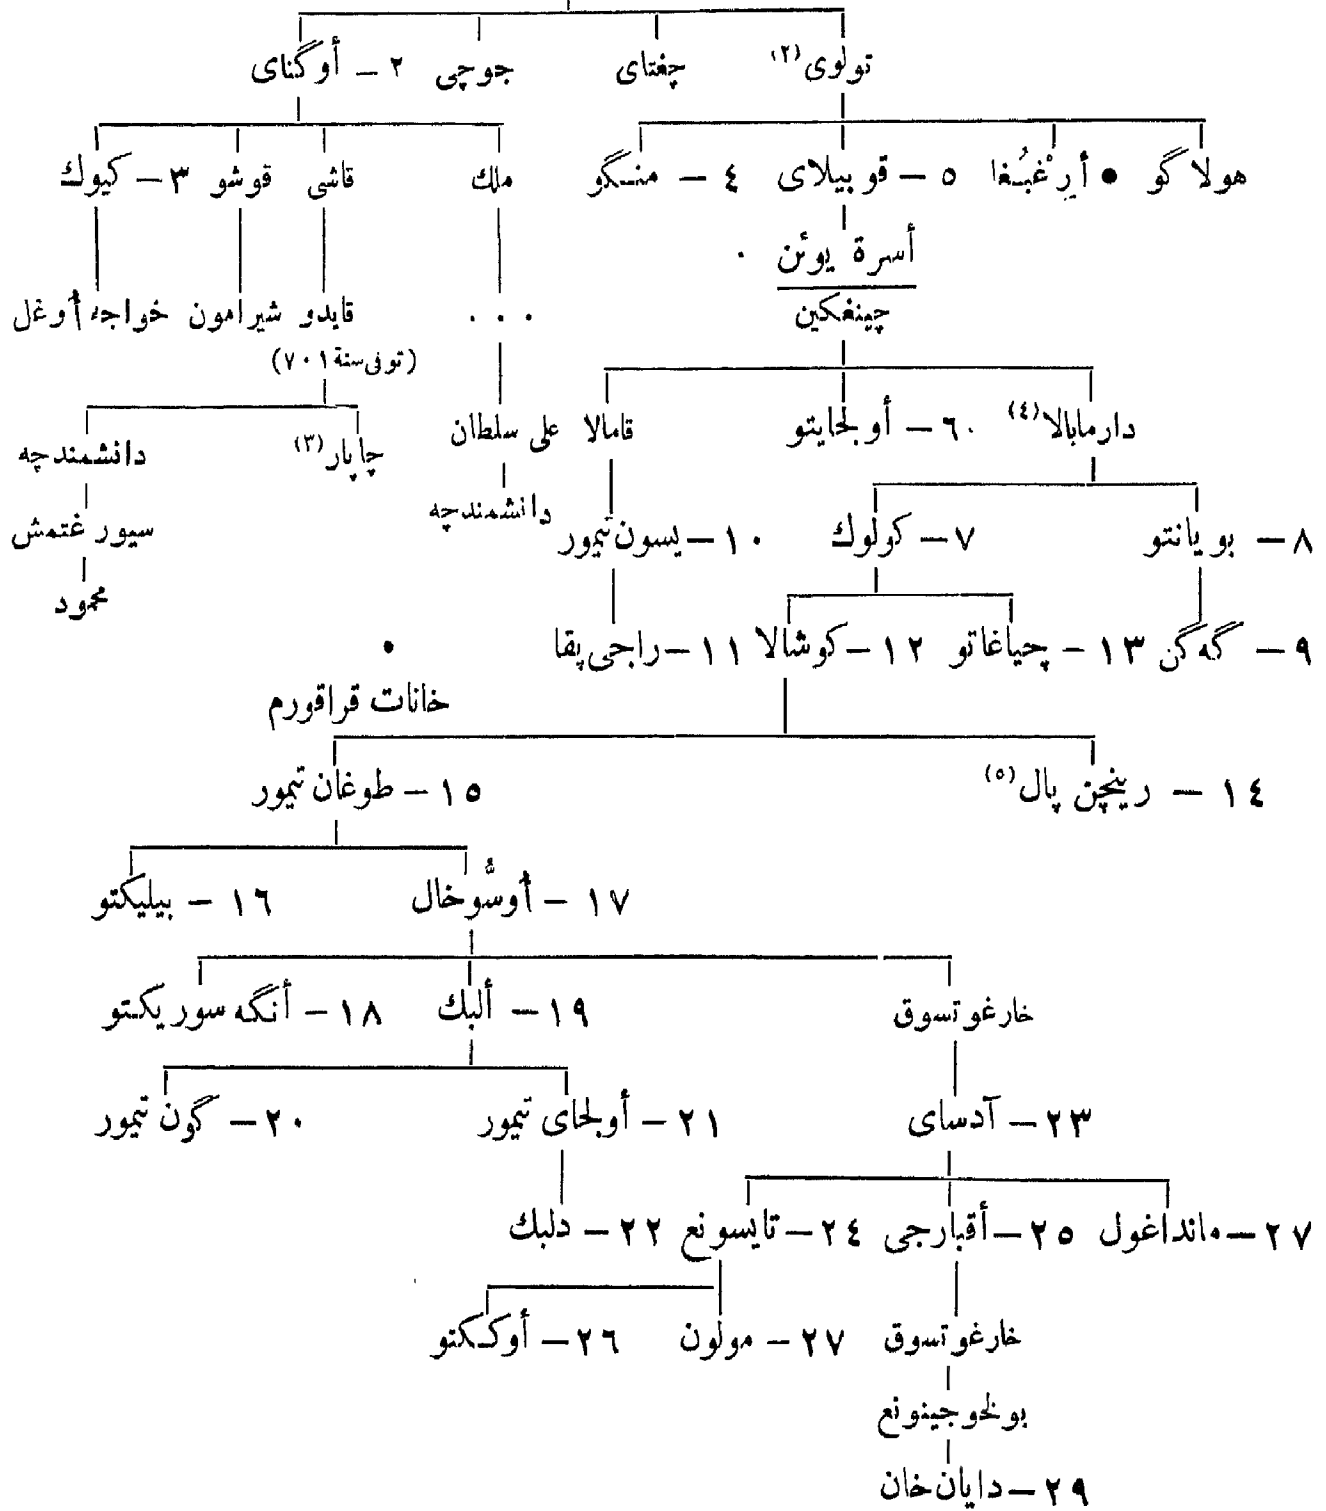 تولوی (٢) چغتای جوچی ٢ – أوگتای
هولاگو • أَرِغْبُغا ٥ – قوبیلای ٤ – منگو ملك قاشی قوشو ٣ – کیوك
أسرة یوئن
چینغکین ... قایدو شیرامون خواجه أوغل
(توفی سنة ٧٠١)
دارمابالا (٤) ٦ – أولجایتو قامالا علی سلطان چاپار (٣) دانشمندچه
٨ – بویانتو ٧ – کولوك ١٠ – یسون تیمور دانشمندچه سیورغتمش
محمود
٩ – گه گن ١٣ – چیاغاتو ١٢ – کوشالا ١١ – راجی پقا
خانات قراقورم
١٤ – رینچن پال (٥) ١٥ – طوغان تیمور
١٧ – أوسُّوخال ١٦ – بیلیکتو
خارغوتسوق ١٩ – ألبك ١٨ – أنگه سوریکتو
٢٣ – آدسای ٢١ – أولجای تیمور ٢٠ – گون تیمور
٢٧ – مانداغول ٢٥ – أقبارجی ٢٤ – تایسونع ٢٢ – دلبك
خارغوتسوق ٢٧ – مولون ٢٦ – أوککتو
بولخوجینونع
٢٩ – دایان خان